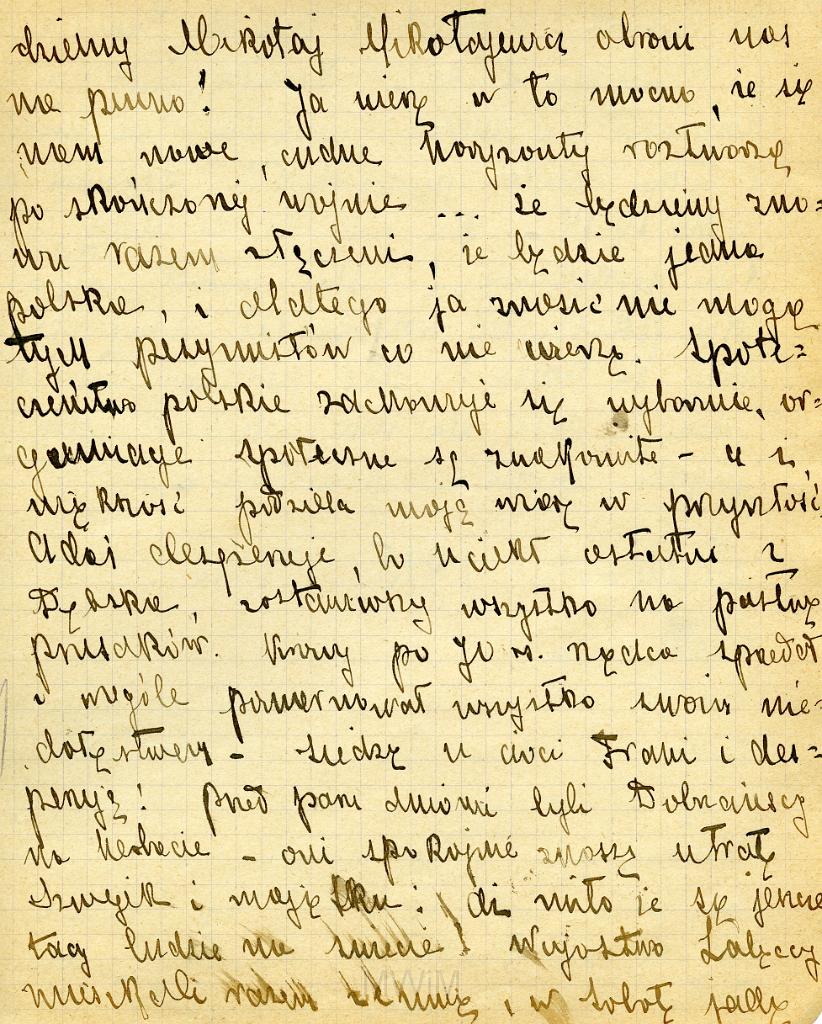 dziemy Mikołaj Mikołajewicz obroni nas
na pewno! Ja wierzę w to mocno, że się
nam nowe, cudne horyzonty roztworzą
po skończonej wojnie ... że będziemy zno=
wu razem złączeni, że będzie jedna
polska, i dlatego ja znosić nie mogę
tych pesymistów co nie wierzą. Społe=
czeństwo polskie zachowuje się wybornie, or=
ganizacje społeczne są znakomite - a i
większość podziela moją wiarę w przyszłość.
Adaś desperuje, bo uciekł ostatni z
Dębska, zostawiwszy wszystko na pastwę
prusaków. Krowy po 70 rs. rządca sprzedał
i wogóle pomarnował wszystko swoim nie=
dołęstwem - Siedzą u cioci Frani i des=
perują! Przed paru dniami byli Dobraniccy
na herbacie - oni spokojnie znoszą utratę
i majątku: aż miło że są jeszcze
tacy ludzie na świecie! Wujostwo Załęccy
mieszkali razem ze mną, i w sobotę jadą
MWiM